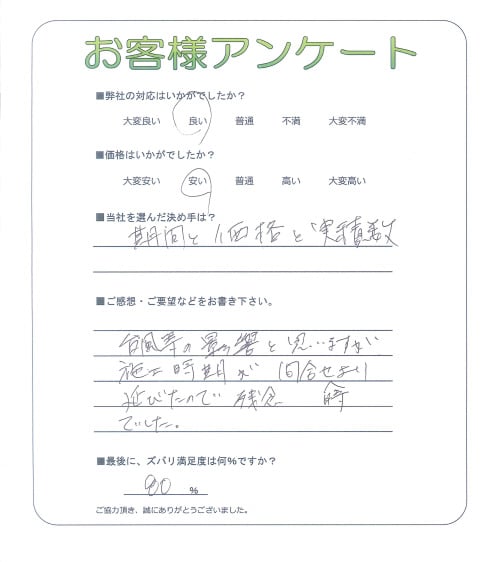 お客様アンケート
■弊社の対応はいかがでしたか?
大変良い 良い 普通 不満 大変不満
■価格はいかがでしたか?
大変安い 安い 普通 高い 大変高い
■当社を選んだ決め手は?
期間と価格と実積数
■ご感想・ご要望などをお書き下さい。
台風等の影響と思いますが
施工時期が 問合せより
延びたので 残念
でした。
■最後に、ズバリ満足度は何%ですか?
90 %
ご協力頂き、誠にありがとうございました。